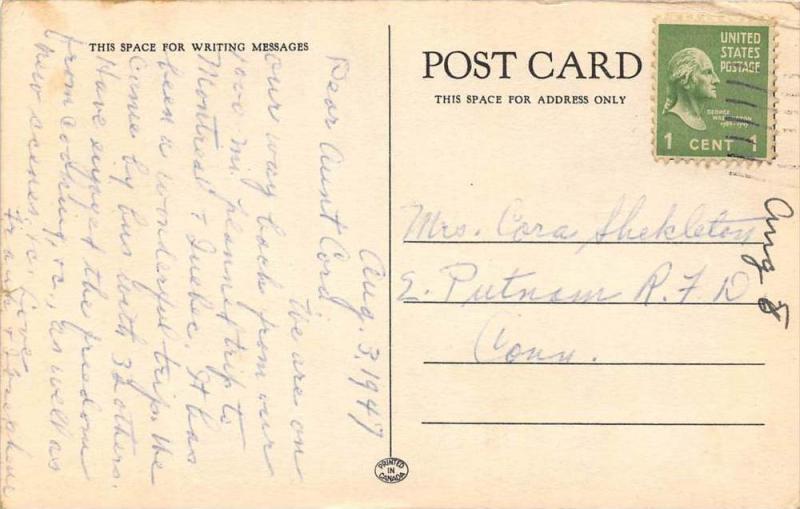 THIS SPACE FOR WRITING MESSAGES
Aug. 3, 1947
Dear Aunt Cora
We are on
our way back from our
1600 mi. planned trip to
Montreal & Quebec. It has
been a wonderful trip. We
Came by bus with 32 others.
Have enjoyed the freedom
from cooking, &c., as well as
new scenes, &c. Love
Frank & Josephine
POST CARD
THIS SPACE FOR ADDRESS ONLY
UNITED
STATES
POSTAGE
GEORGE
WASHINGTON
1 CENT 1
Mrs. Cora Shekleton
E. Putnam R.F.D
Conn.
Aug 8
PRINTED
IN
CANADA